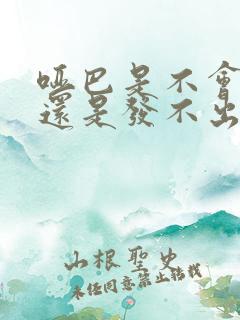 啞巴是不會
還是發不出
山根聖史
未經同意禁止轉載